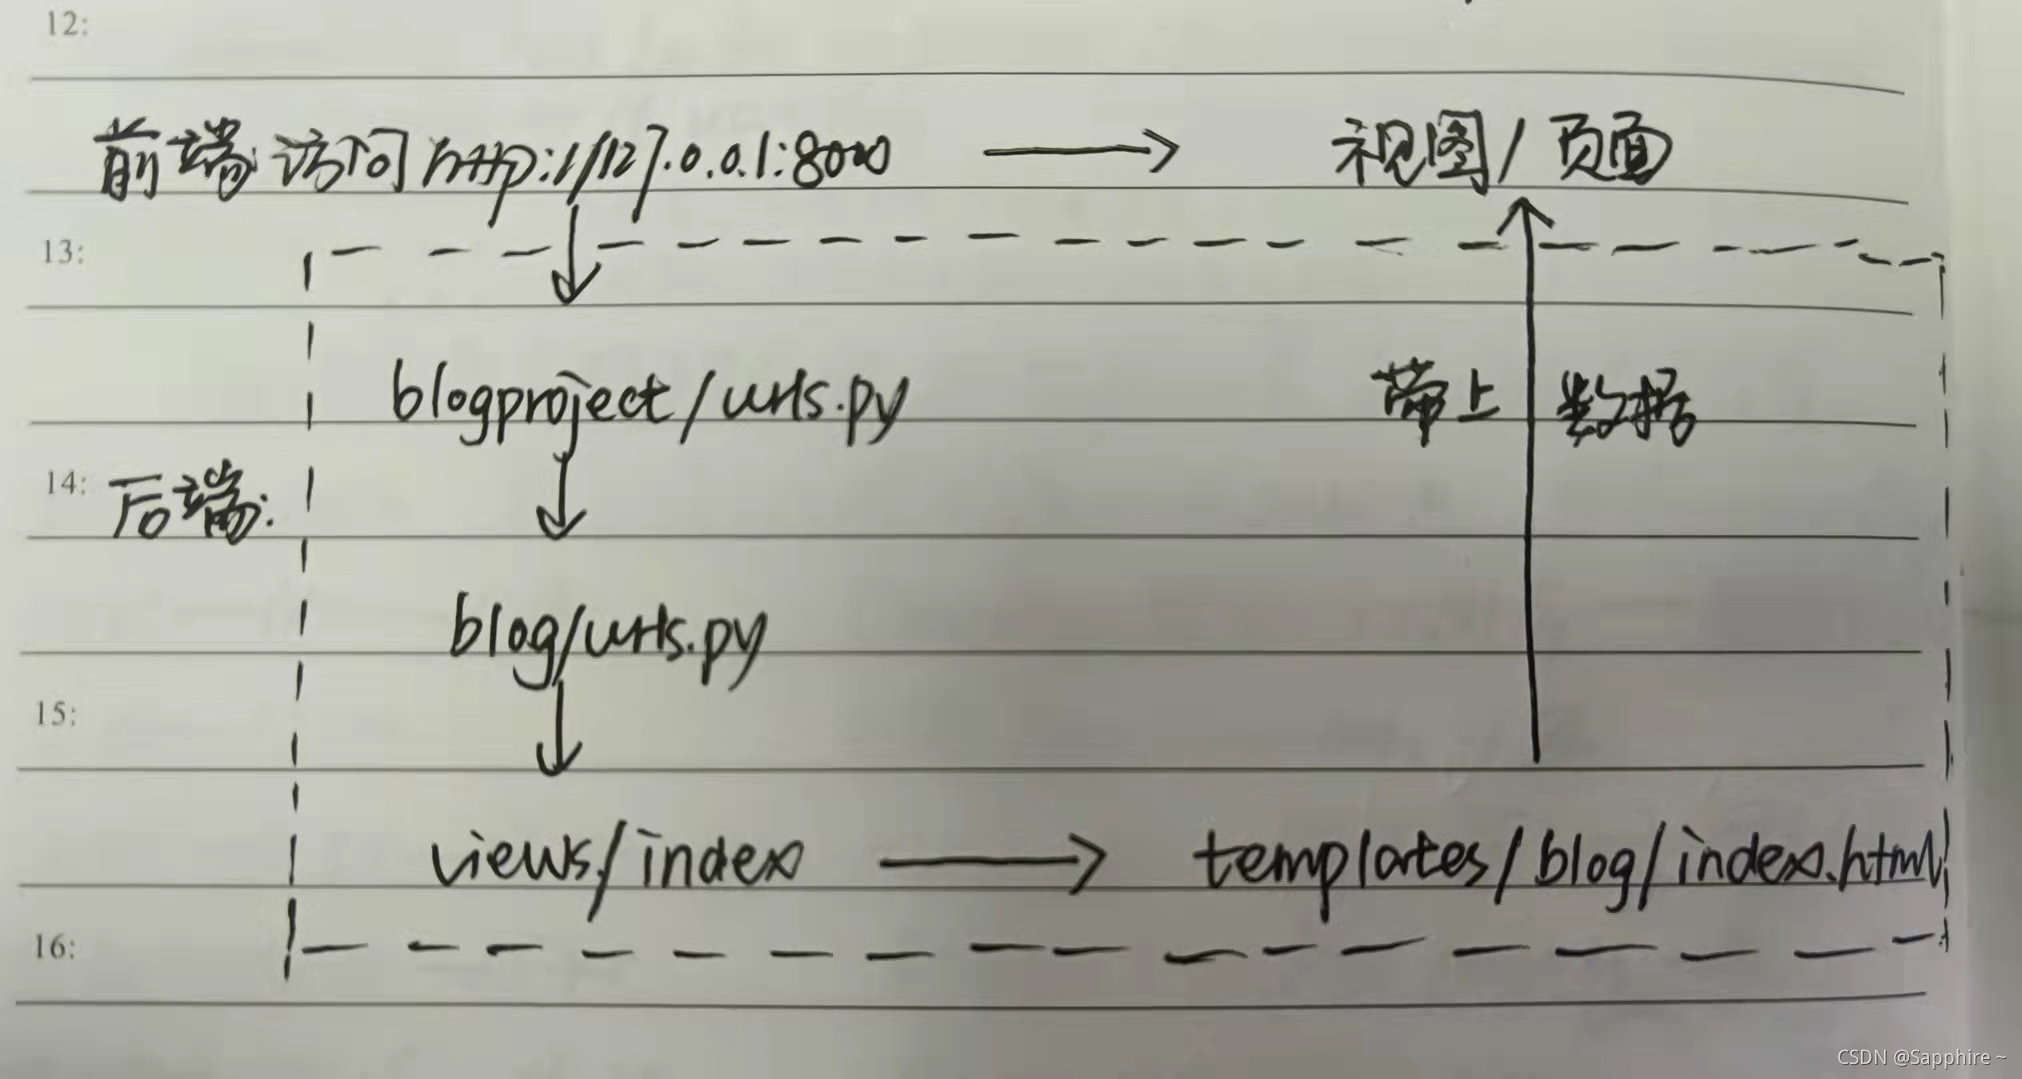 12:
前端: 访问 http://127.0.0.1:8000 → 视图/页面
13:
blogproject/urls.py 带上 数据
14: 后端:
blog/urls.py
15:
views/index → templates/blog/index.html
16:
CSDN @Sapphire ~